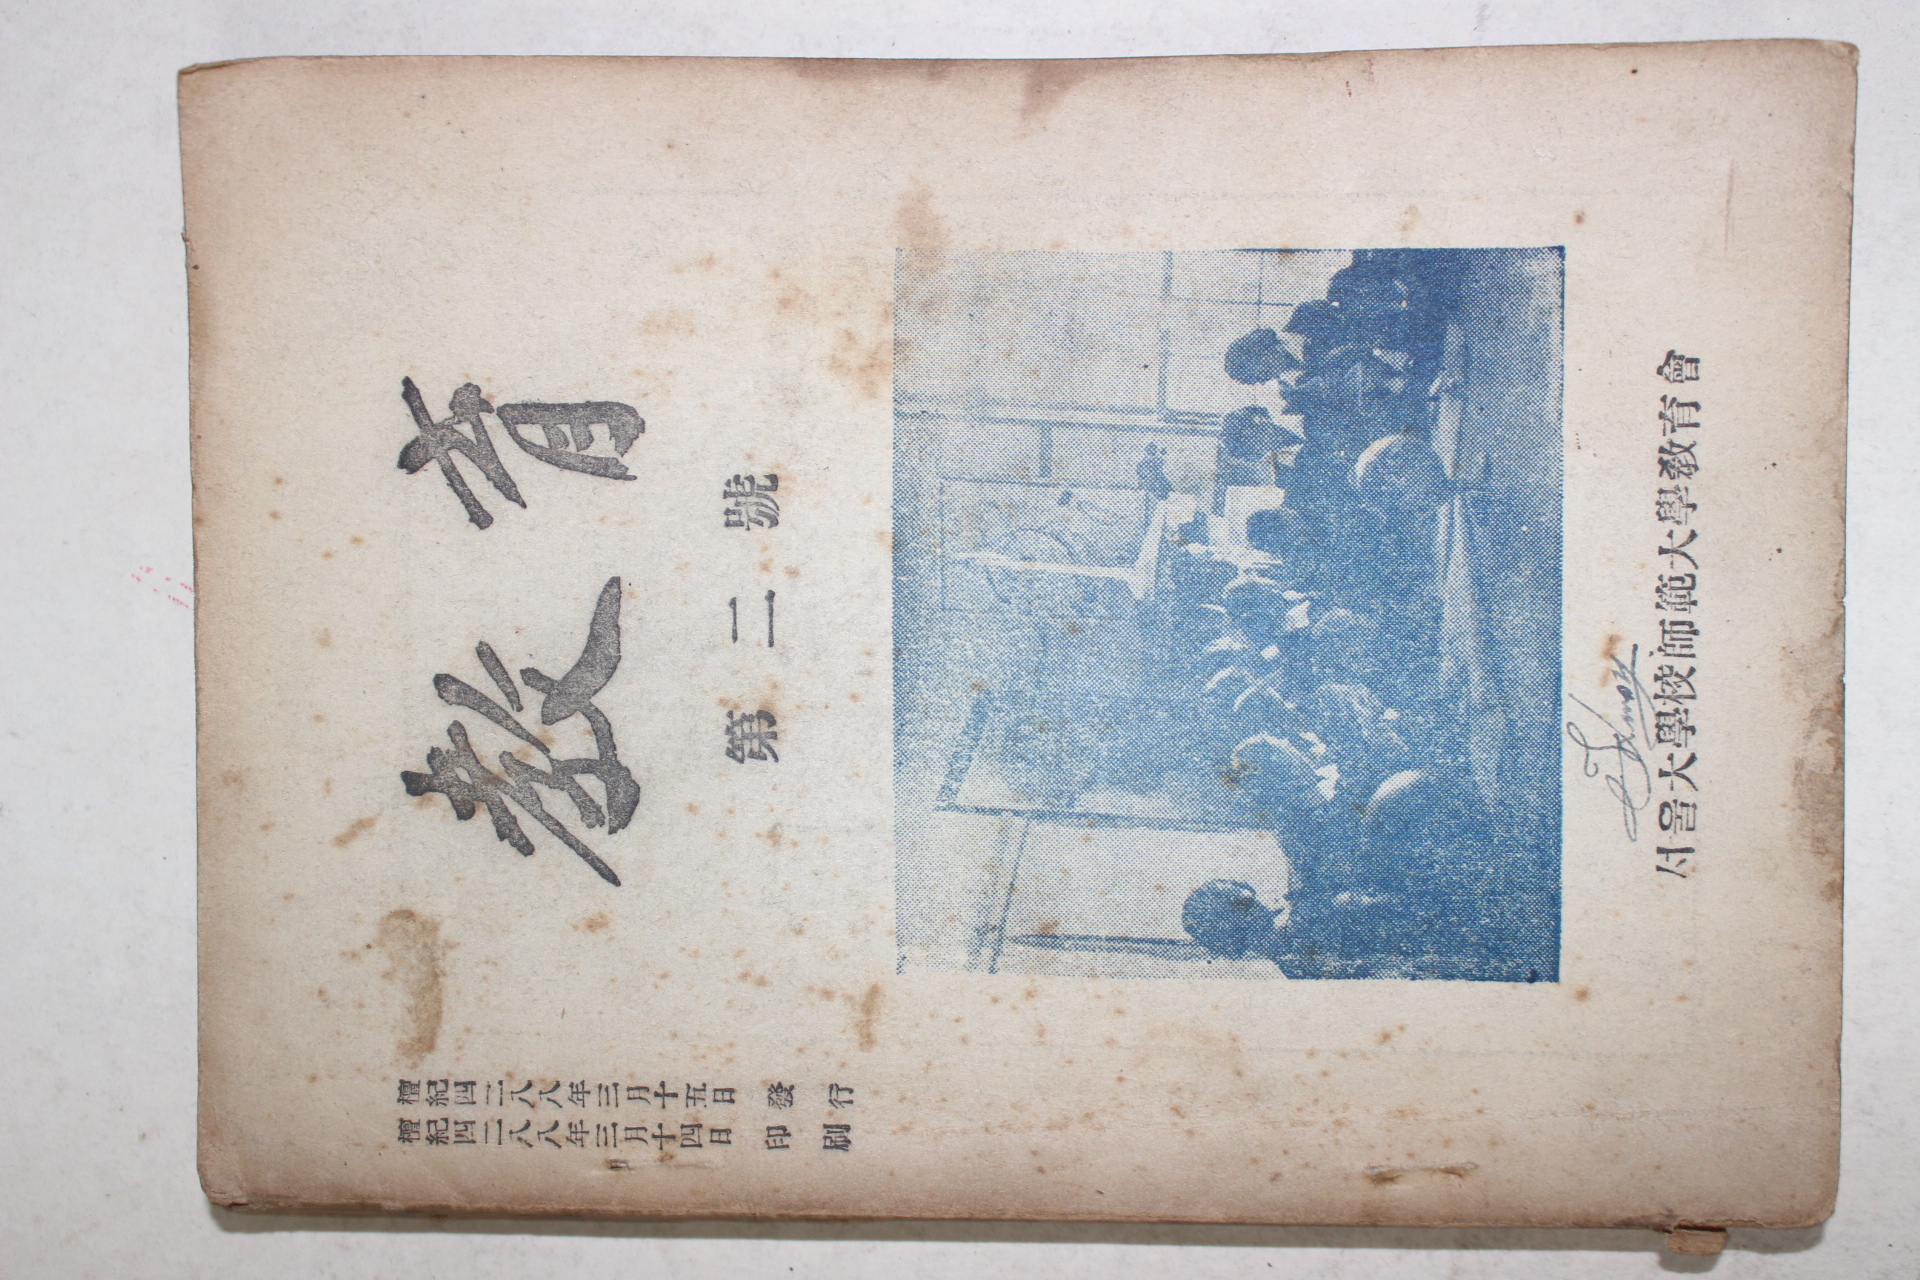 教育
第二號
檀紀四二八八年三月十四日 印刷
檀紀四二八八年三月十五日 發行
서울大學校師範大學敎育會